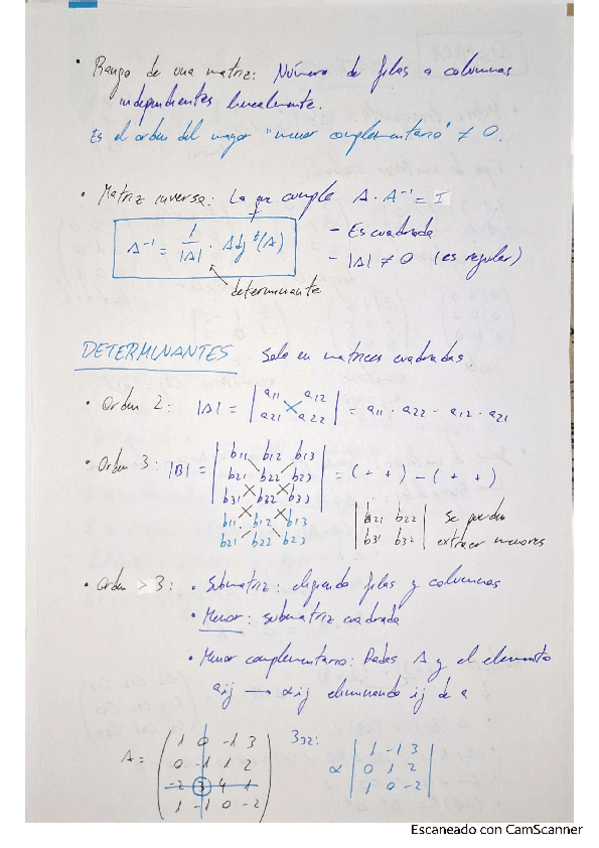 • Rango de una matriz: Número de filas o columnas
independientes linealmente.
Es el orden del mayor "menor complementario" ≠ 0.
• Matriz inversa: La que cumple A · A⁻¹ = I
A⁻¹ = 1/|A| · Adjᵗ(A)
- Es cuadrada
- |A| ≠ 0 (es regular)
determinante
DETERMINANTES Solo en matrices cuadradas.
• Orden 2: |A| = | a11 a12 |
| a21 a22 | = a11 · a22 - a12 · a21
• Orden 3: |B| = | b11 b12 b13 |
| b21 b22 b23 | = (+ +) - (+ +)
| b31 b22 b33 |
b11 b12 b13
b21 b22 b23
| b21 b22 | Se pueden
| b31 b32 | extraer menores
• Orden > 3: • Submatriz: eligiendo filas y columnas
• Menor: submatriz cuadrada
• Menor complementario: Dados A y el elemento
aij → αij eliminando ij de a
A = ( 1 0 -1 3 ) 332: α | 1 -1 3 |
( 0 -1 1 2 ) | 0 1 2 |
( -2 3 4 1 ) | 1 0 -2 |
( 1 -1 0 -2 )
Escaneado con CamScanner